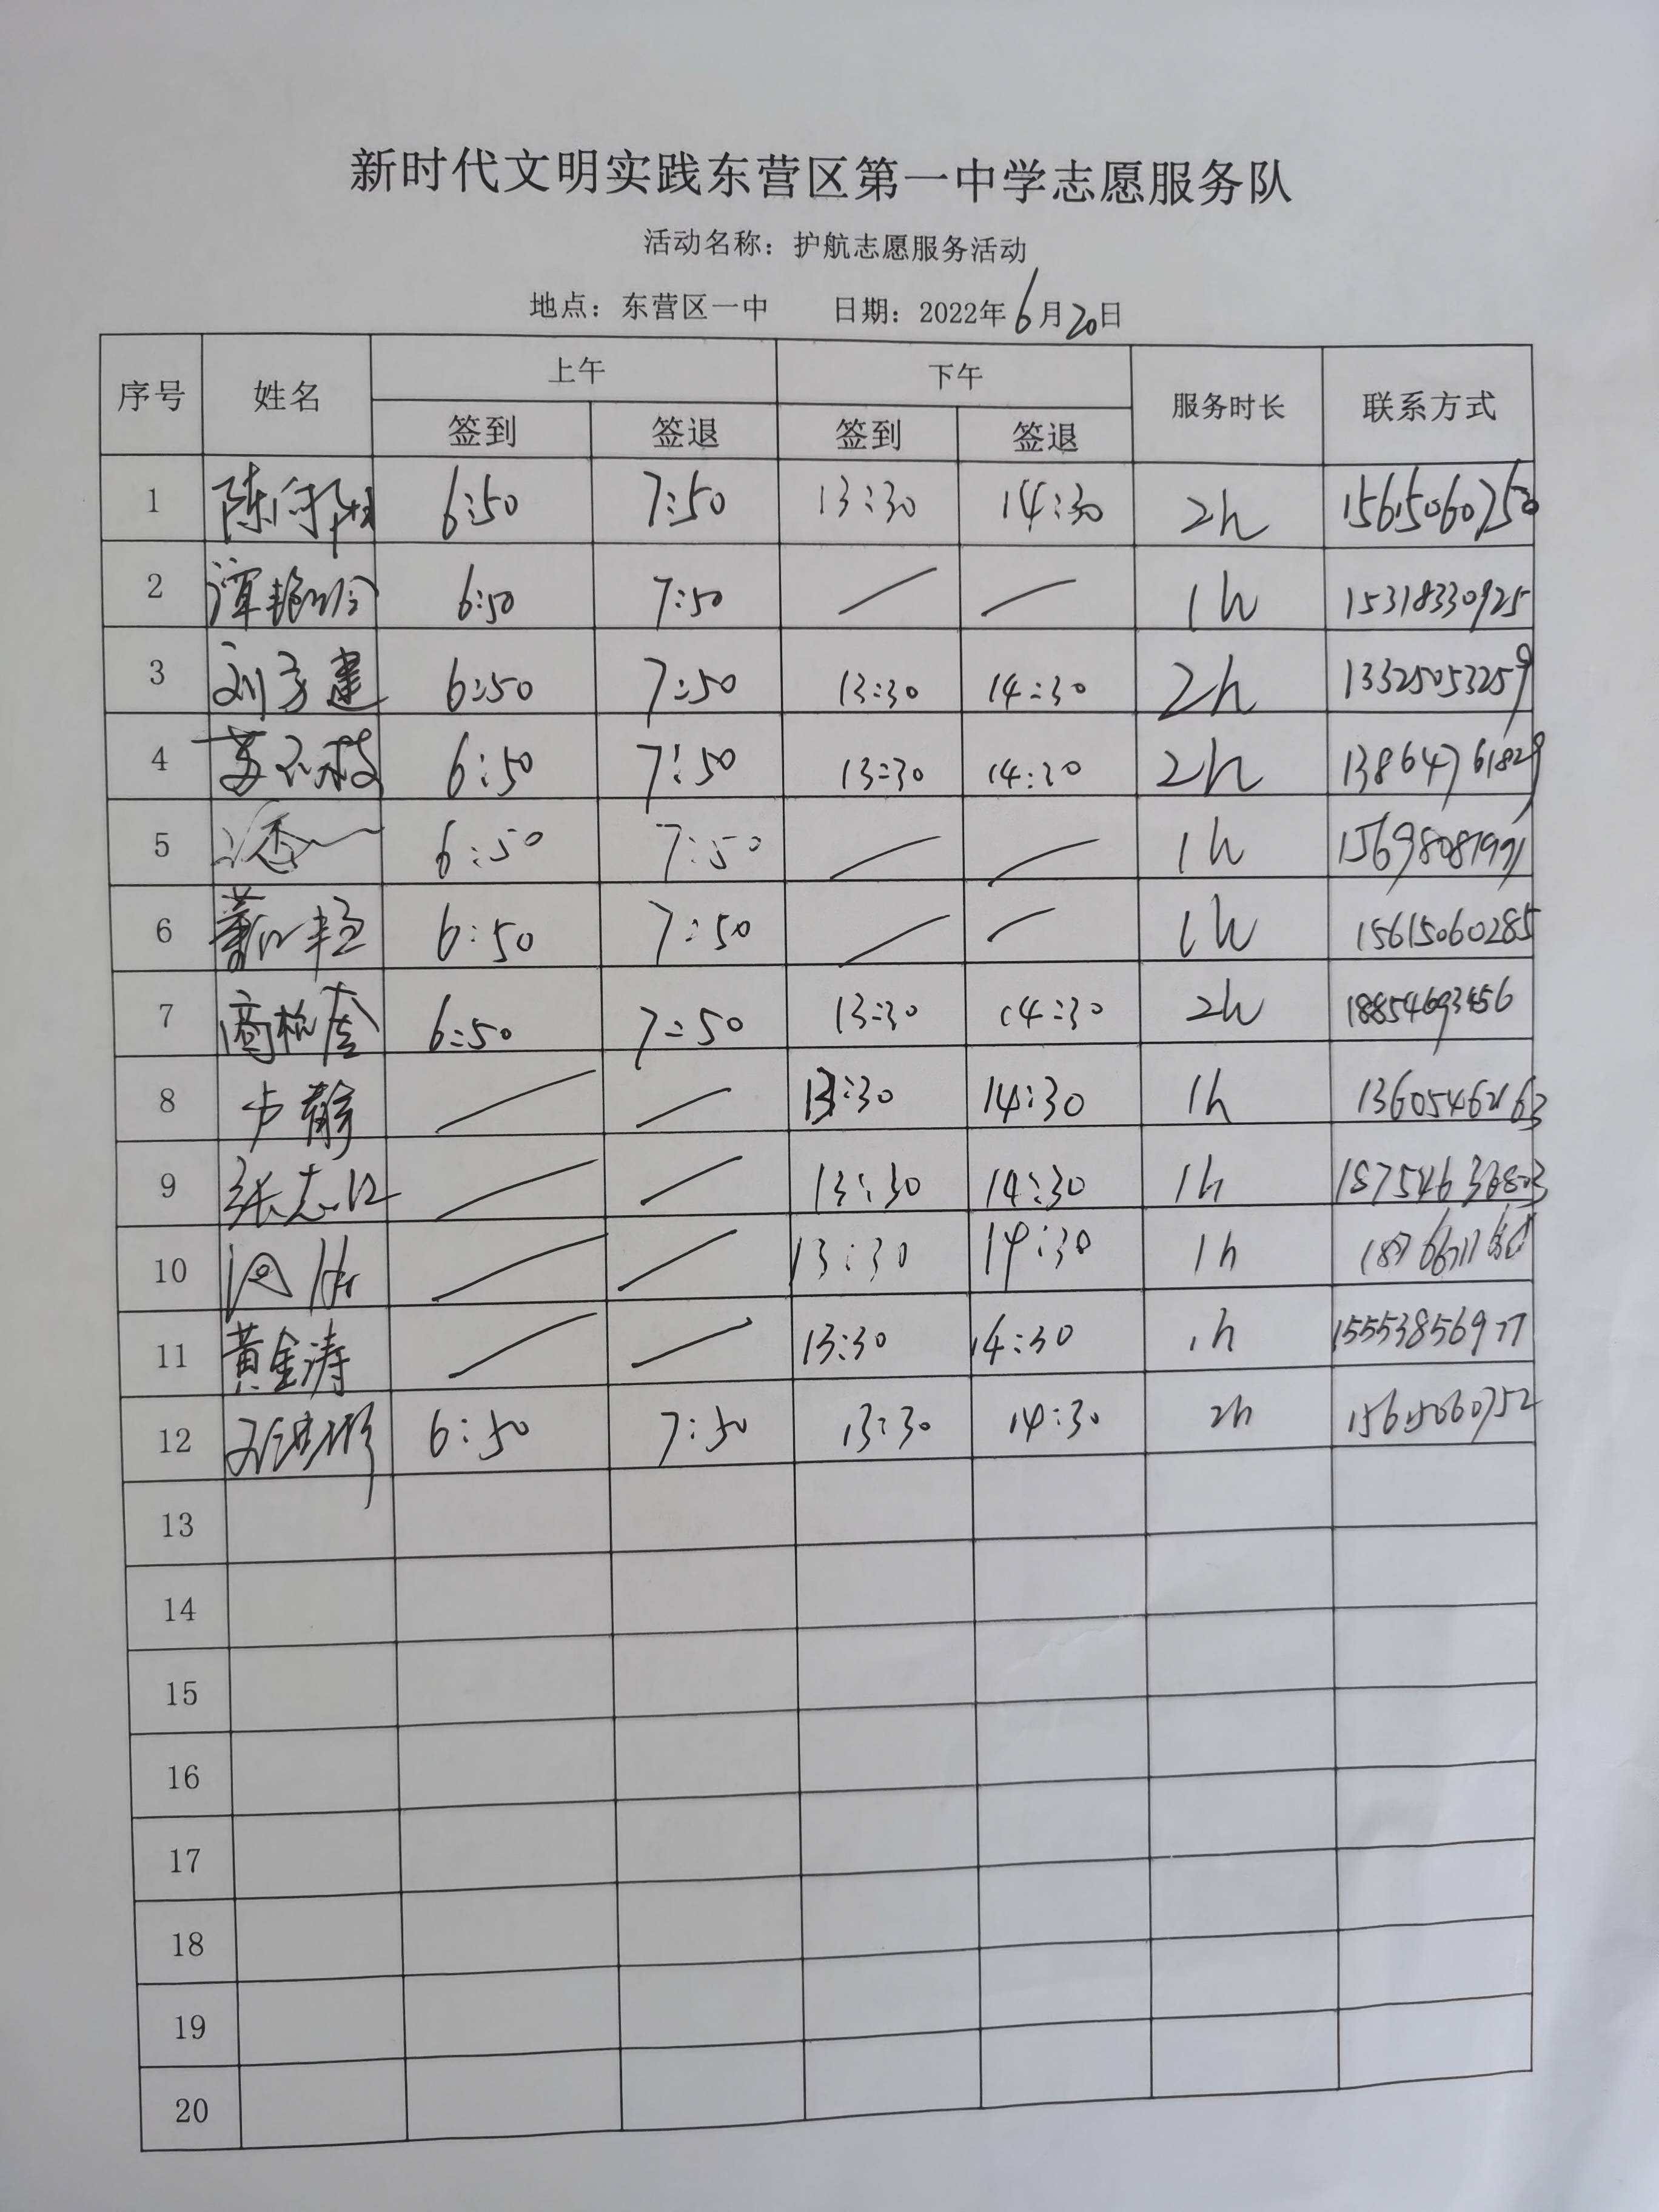 新时代文明实践东营区第一中学志愿服务队
活动名称：护航志愿服务活动
地点：东营区一中 日期：2022年6月20日
序号 姓名 上午 下午 服务时长 联系方式
签到 签退 签到 签退
1 6:50 7:50 13:30 14:30 2h 15615060750
2 6:50 7:50 1h 15318330925
3 6:50 7:50 13:30 14:30 2h 13325053259
4 6:50 7:50 13:30 14:30 2h 13864761829
5 6:50 7:50 1h
6 6:50 7:50 1h 15615060285
7 6:50 7:50 13:30 14:30 2h 18854693456
8 卢静 13:30 14:30 1h 13605462163
9 13:30 14:30 1h
10 13:30 14:30 1h
11 黄金涛 13:30 14:30 1h 15553856977
12 6:50 7:50 13:30 14:30 2h 15615060752
13
14
15
16
17
18
19
20